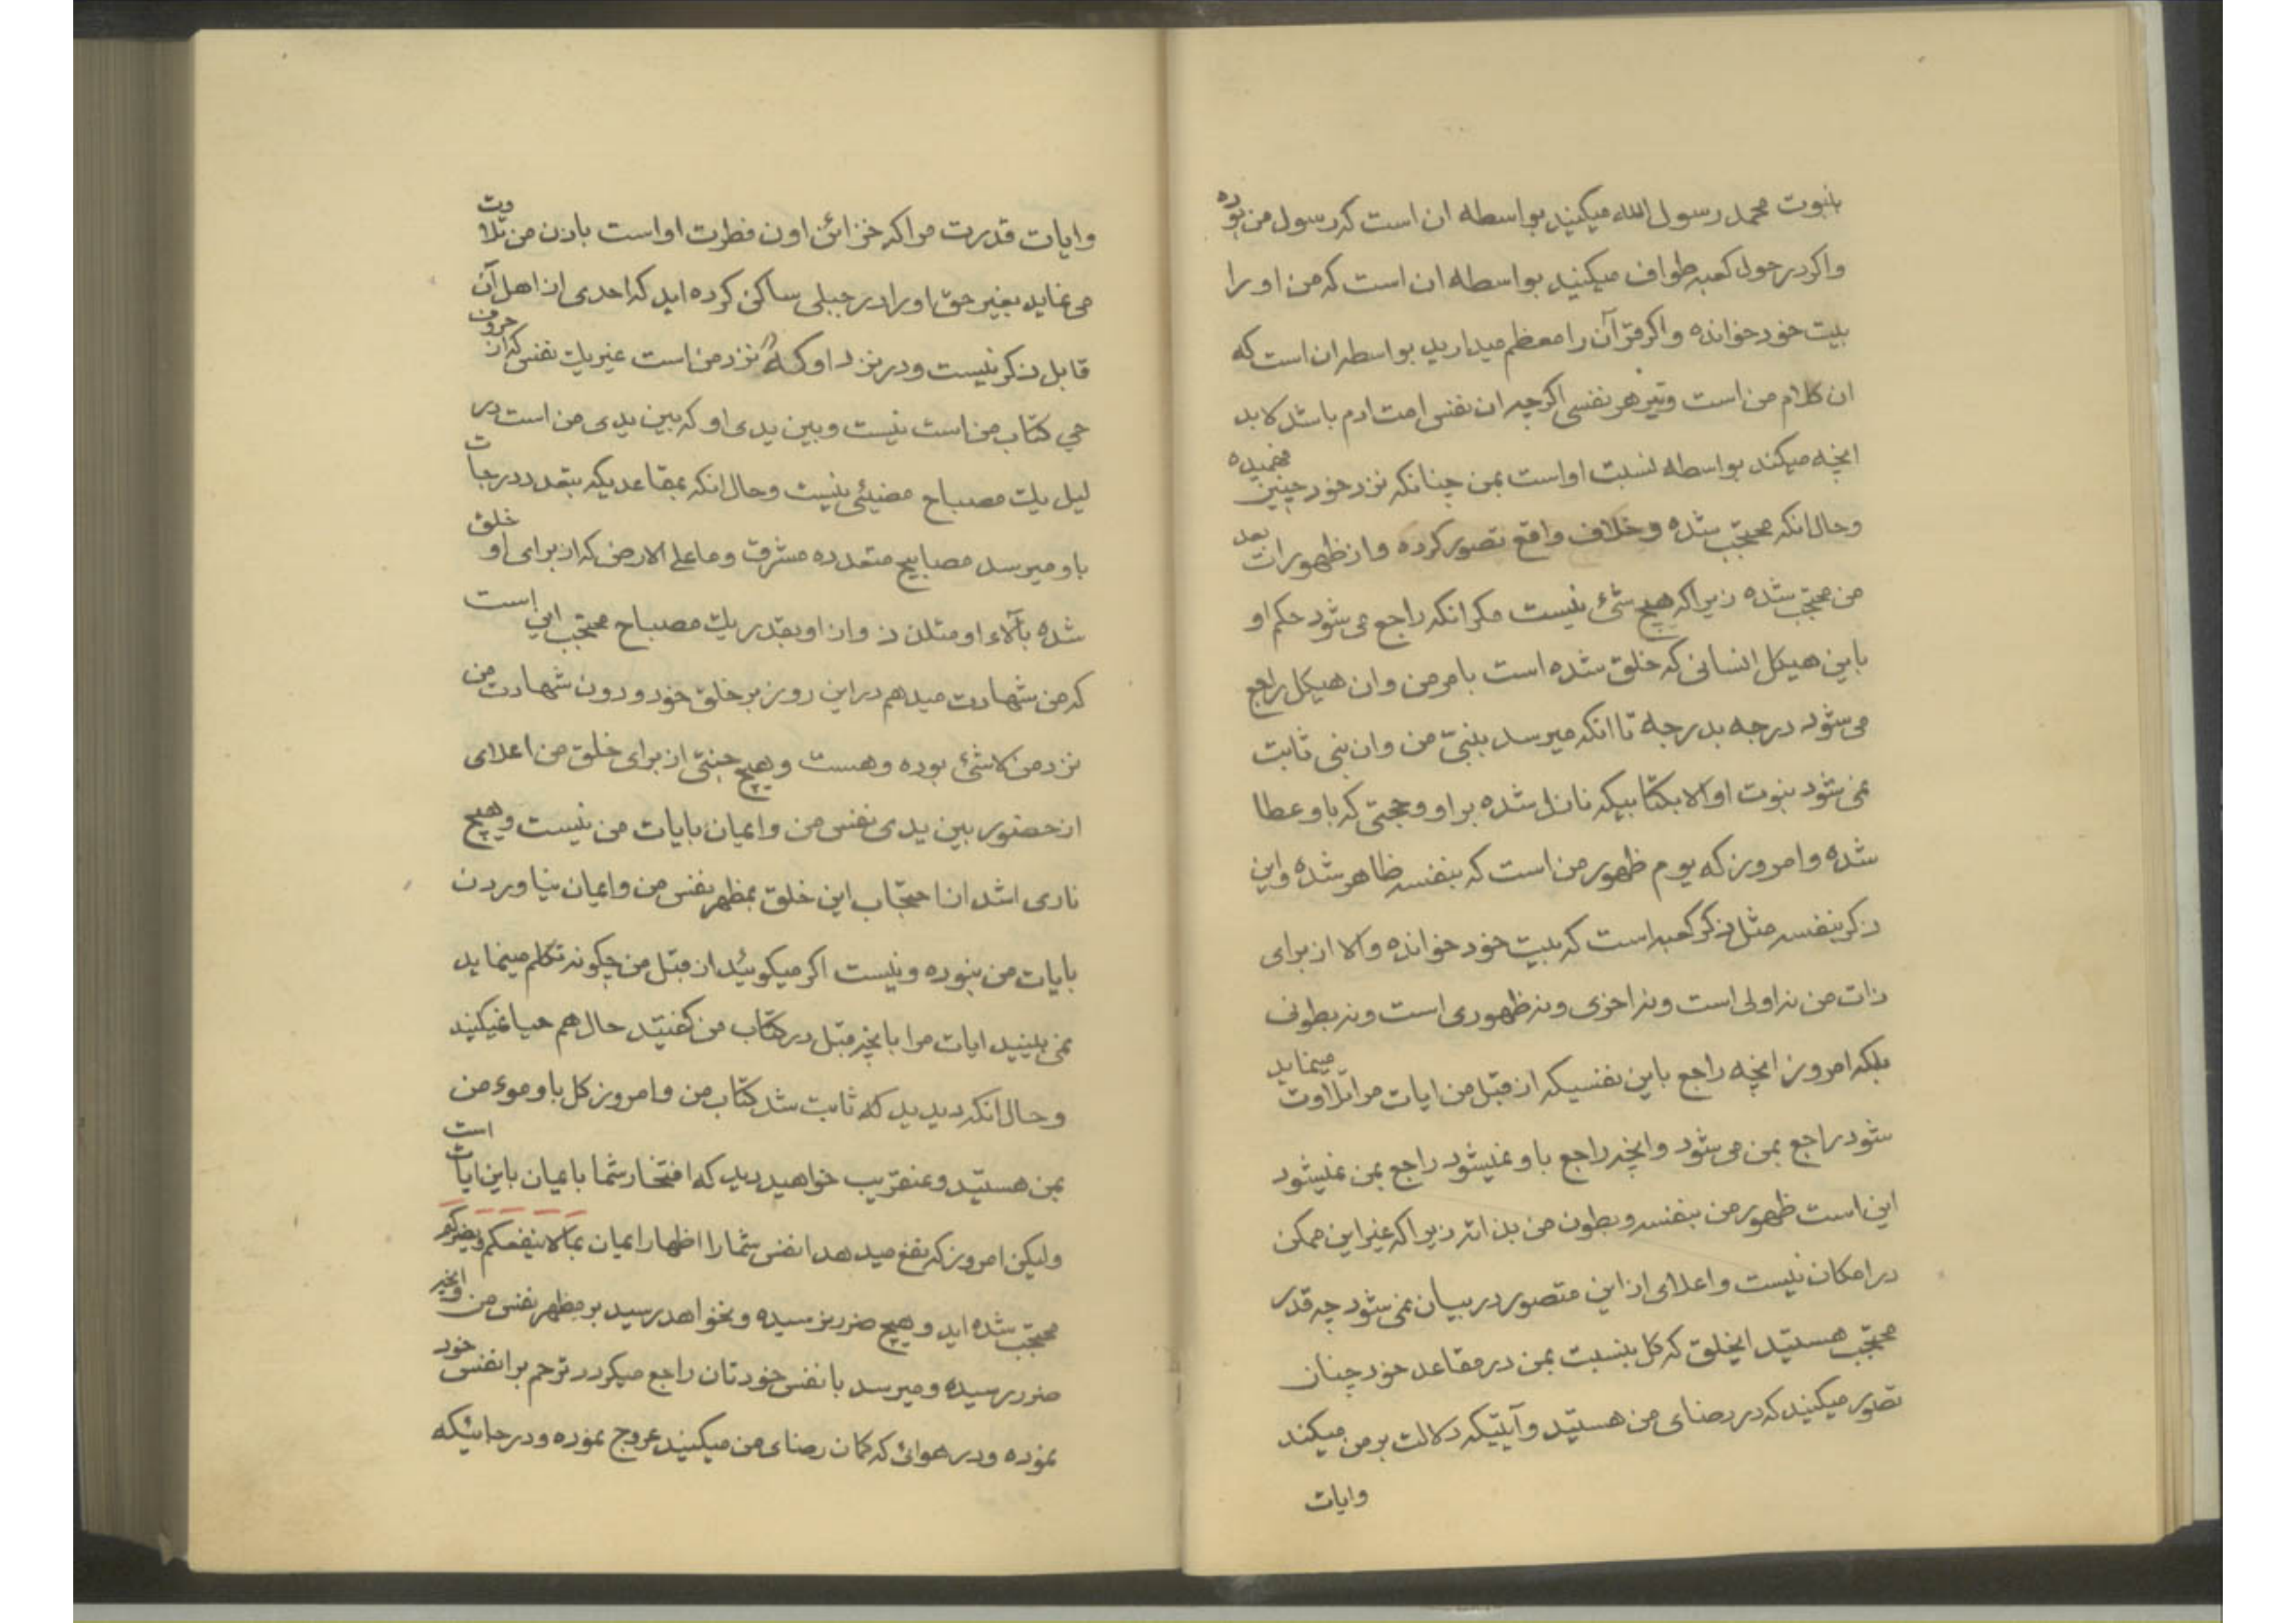 بنبوت محمد رسول الله میکنید بواسطه ان است که رسول من بوده
واکر در حول کعبه طواف میکنید بواسطه ان است که من او را
بیت خود خوانده واکر قرآن را معظم میدارید بواسطه ان است که
ان کلام من است وتیر هر نفسی اکرچه ان نفس امت ادم باشد لابد
انچه میکند بواسطه نسبت او است بمن چنانکه نزد خود چنین فهمیده
وحال انکه محتجب شده وخلاف واقع تصور کرده واز ظهورات بعد
من محتجب شده زیراکه هیچ شئ نیست مکر انکه راجع می شود حکم او
باین هیکل انسانی که خلق شده است بامر من وان هیکل راجع
می شود درجه بدرجه تا انکه میرسد بنبیّ من وان نبی ثابت
نمی شود نبوت او الا بکتابیکه نازل شده براو وحجتی که باو عطا
شده وامروز که یوم ظهور من است که بنفسه ظاهر شده واین
ذکر بنفسه مثل ذکر کعبه است که بیت خود خوانده والا از برای
ذات من نه اولی است ونه اخری ونه ظهوری است ونه بطونی
بلکه امروز انچه راجع باین نفسیکه از قبل من ایات مرا تلاوت مینماید
شود راجع بمن می شود وانچه راجع باو نمیشود راجع بمن نمیشود
این است ظهور من بنفسه وبطون من بذاته زیراکه غیر این ممکن
در امکان نیست واعلای از این متصور در بیان نمی شود چه قدر
محتجب هستید ایخلق که کل بنسبت بمن در مقاعد خود چنان
تصور میکنید که در رضای من هستید وآیتیکه دلالت بر من میکند
وایات
وایات قدرت مرا که خزائن اون فطرت او است باذن من تلاوت
می نماید بغیر حق اورا در جبلی ساکن کرده اید که احدی از اهل آن
قابل ذکر نیست ودر نزد او که نزد من است غیر یك نفس که از حروف
حی کتاب من است نیست وبین یدی او که بین یدی من است در
لیل یك مصباح مضیئی نیست وحال انکه بمقاعدیکه بتعدد درجات
باو میرسد مصابیح متعدده مشرق وما علی الارض که از برای او خلق
شده بآلاء او متلذذ واز او بقدر یك مصباح محتجب این است
که من شهادت میدهم در این روز بر خلق خود ودون شهادت من
نزد من لاشئ بوده وهست وهیچ جنتی از برای خلق من اعلای
از حضور بین یدی نفس من وایمان بایات من نیست وهیچ
ناری اشد از احتجاب این خلق بمظهر نفس من وایمان نیاوردن
بایات من نبوده ونیست اکر میکوئید از قبل من چکونه تکلم مینماید
نمی بینید ایات مرا بانچه قبل در کتاب من کفتید حال هم حیا نمیکنید
وحال انکه دیدید که ثابت شد کتاب من وامروز کل باو موءمن
بمن هستید وعنقریب خواهید دید که افتخار شما بایمان باین ایات است
ولیکن امروز که نفع میدهد انفس شمارا اظهار ایمان بما لاینفعکم ویضرکم
محتجب شده اید وهیچ ضرر نرسیده ونخواهد رسید بر مظهر نفس من وانچه
ضرر رسیده ومیرسد بانفس خودتان راجع میکردد ترحم بر انفس خود
نموده ودر هوائ که کمان رضای من میکنید عروج نموده ودر جائیکه